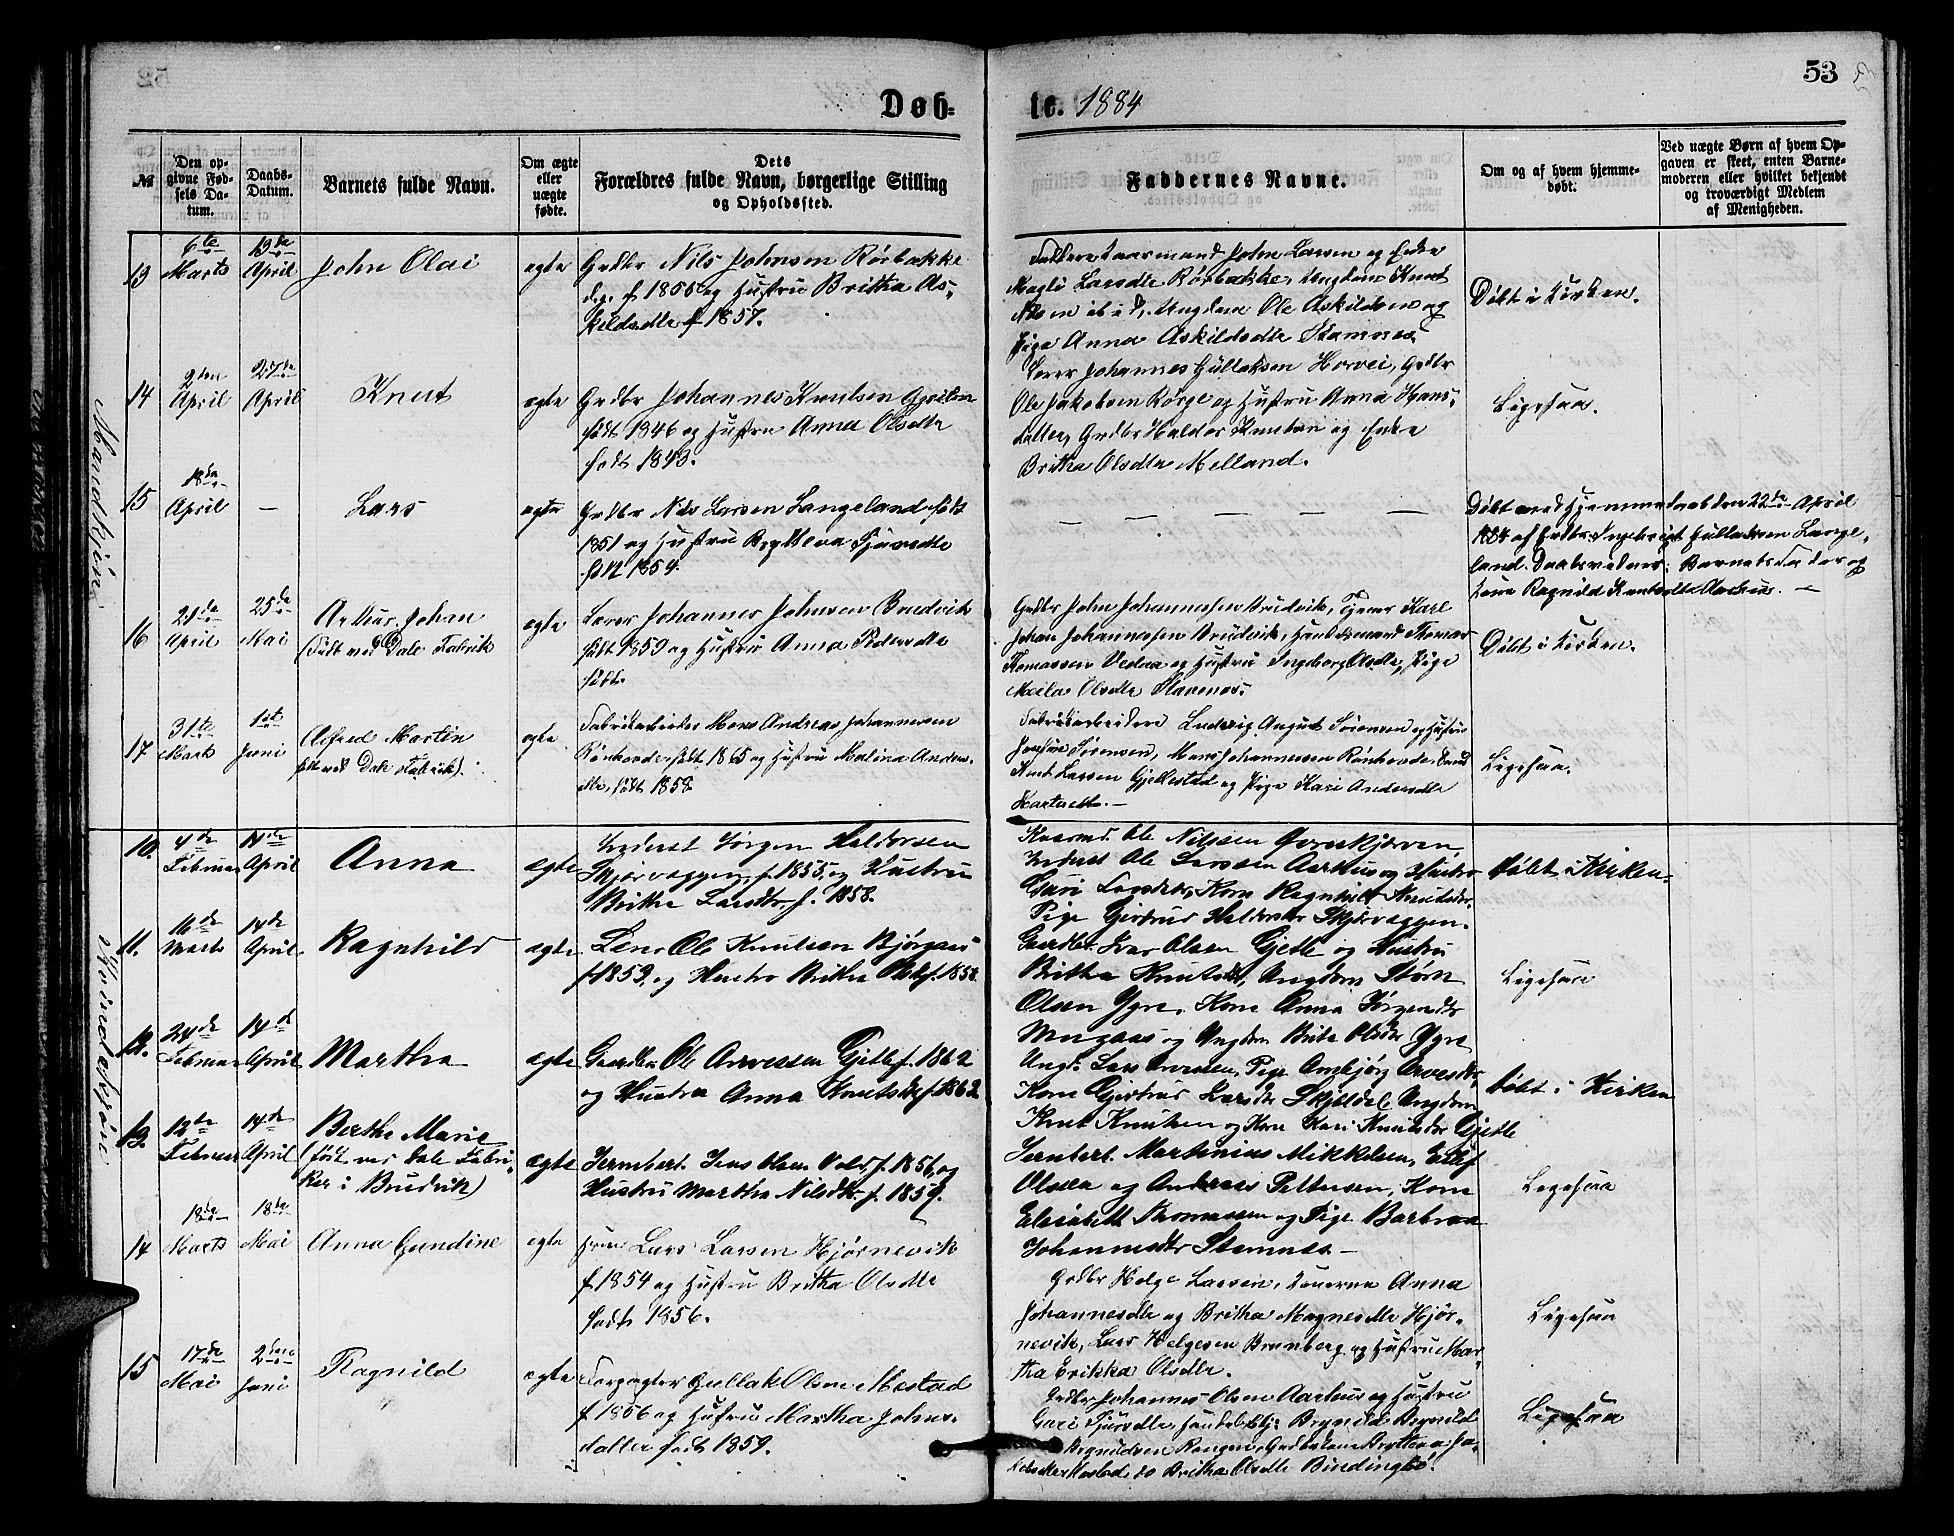 53
Døb-
te. 1884
№
Den opgivne Fødsels Datum.
Daabs-Datum.
Barnets fulde Navn.
Om ægte eller uægte fødte.
Dets Forældres fulde Navn, borgerlige Stilling og Opholdssted.
Faddernes Navne.
Om og af hvem hjemmedøbt.
Ved uægte Børn af hvem Opgaven er skeet, enten Barnemoderen eller hvilket bekjendt og troværdigt Medlem af Menigheden.
Mandkjøn
13
6te Marts
13de April
John Olai
ægte
Grdbr Nils Johnsen Rörbakke
og Hustru Britha As-
kildsdtr f 1857.
John Larsen og Enke
Larsdtr Rörbakke, Ungdom Knut
Ungdom Ole Askildsen og
Pige Anna Askildsdtr Stamnes
Döbt i Kirken.
14
2den April
27de April
Knut
ægte
Grdbr Johannes Knutsen
født 1846 og Hustru Anna Olsdtr
født 1843.
Lærer Johannes Gullaksen Horvei, Grdbr
Ole Jakobsen Rörge og Hustru Anna Hans-
datter, Grdbr Haldor Knutsen og Enke
Britha Olsdtr Melland.
Ligesaa.
15
18de April
—
Lars
ægte
Grdbr Nils Larsen Langeland født
1851 og Hustru Brytteva Sjursdtr
født 1854.
— — — — — —
Døbt ved Hjemmedaab den 22de April
1884 af Grdbr Ingebrigt Gullaksen Lange-
land. Daabsvidner: Barnets Fader og
Kone Ragnild Knutsdtr Aarhus. —
16
21de April
25de Mai
Arthur John
(Født ved Dale Fabrik
ægte
Lærer Johannes Johnsen Brudvik
født 1859 og Hustru Anna Pedersdtr
født.
Grdbr John Johannesen Brudvik, Tjener Karl
Johan Johannesen Brudvik, Handelsmand Thomas
Thomassen Vedaa og Hustru Ingeborg Olsdtr, Pige
Olsdtr Stamnes.
Döbt i Kirken.
17
31te Marts
1ste Juni
Alfred Martin
født ved Dale Fabrik).
ægte
Fabrikarbeider Mons Andreas Johannessen
Rönhovde født 1865 og Hustru Malina Anders-
dtr, født 1858
Fabrikarbeidere Ludvig August Sörensen og Hustru
Josefine Sörensen, Mons Johannessen Rönhovde,
Knut Larsen Gjellestad og Pige Kari Andersdtr
Ligesaa.
Kvindekjøn
10.
4de Februar
14de April
Anna
ægte
Inderst Jørgen Haldorsen
Skjørvaggen, f. 1855, og Hustru
Britha Larsdtr, f. 1858.
Ole Nilssen
Inderst Ole Larssen Aarhus og Hustru
Guri Larsdtr, Kone Ragnhild Knutsdtr,
Pige Gjertrud Haldorsdtr Skjørvaggen.
Døbt i Kirken.
11.
16de Marts
14de April
Ragnhild
ægte
Lens. Ole Knutsen Bjørgaas
f. 1859, og Hustru Britha
Gaardbr. Ivar Olsen Gjetle og Hustru
Britha Knutsdtr, Ungdom Størk
Olsen Ygre, Kone Anna Jørgensdtr
og Ungdom Brita Olsdtr Ygre
Ligesaa
12.
24de Februar
14de April
Martha
ægte
Gaardbr. Ole Arvessen Gjetle f. 1862
og Hustru Anna Knutsdtr f. 1862
Ungk. Lars Arvessen, Pige Ambjørg Arvesdtr,
Kone Gjertrud Larsdtr Skjeldal, Ungdom
Knut Knutsen og Kone Kari Knutsdtr Gjetle
Døbt i Kirken
13.
12te Februar
14de April
Berthe Marie
(født ved Dale Fabri-
ker i Brudvik)
ægte
Jernbarb. Jens Olsen Vold, f. 1856, og
Hustru Martha Nilsdtr. f. 1857.
Jernbarb. Martinius Mikkelsen, Eilef
Olsen og Andreas Pettersen, Kone
Elisabeth Thomassen og Pige Barbra
Johannesdtr Stamnes —
Ligesaa
14
18de Marts
18de Mai
Anna Gundine
ægte
Lars Larsen Hjørnevik
f. 1854 og Hustru Britha Olsdtr
født 1856.
Grdbr Helge Larsen, Konerne Anna
Johannesdtr og Britha Magnesdtr Hjør-
nevik, Lars Helgesen Brunborg og Hustru Mar-
tha Erikka Olsdtr.
Ligesaa
15
17de Mai
2den Juni
Ragnild
ægte
Forpagter Gullak Olsen Mestad
f. 1856 og Hustru Martha Johns-
datter født 1859.
Grdbr Johannes Olsen Aarhus og Hustru
Guri Sjursdtr, Brynild Brynild
Britha Olsdtr Bindingbø.
Ligesaa